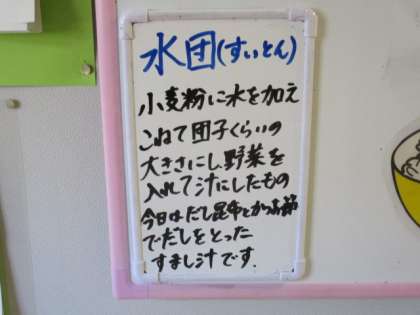 水団(すいとん)
小麦粉に水を加え
こねて団子くらいの
大きさにし、野菜を
入れて汁にしたもの
今日はだし昆布とかつお節
でだしをとった
すまし汁です.